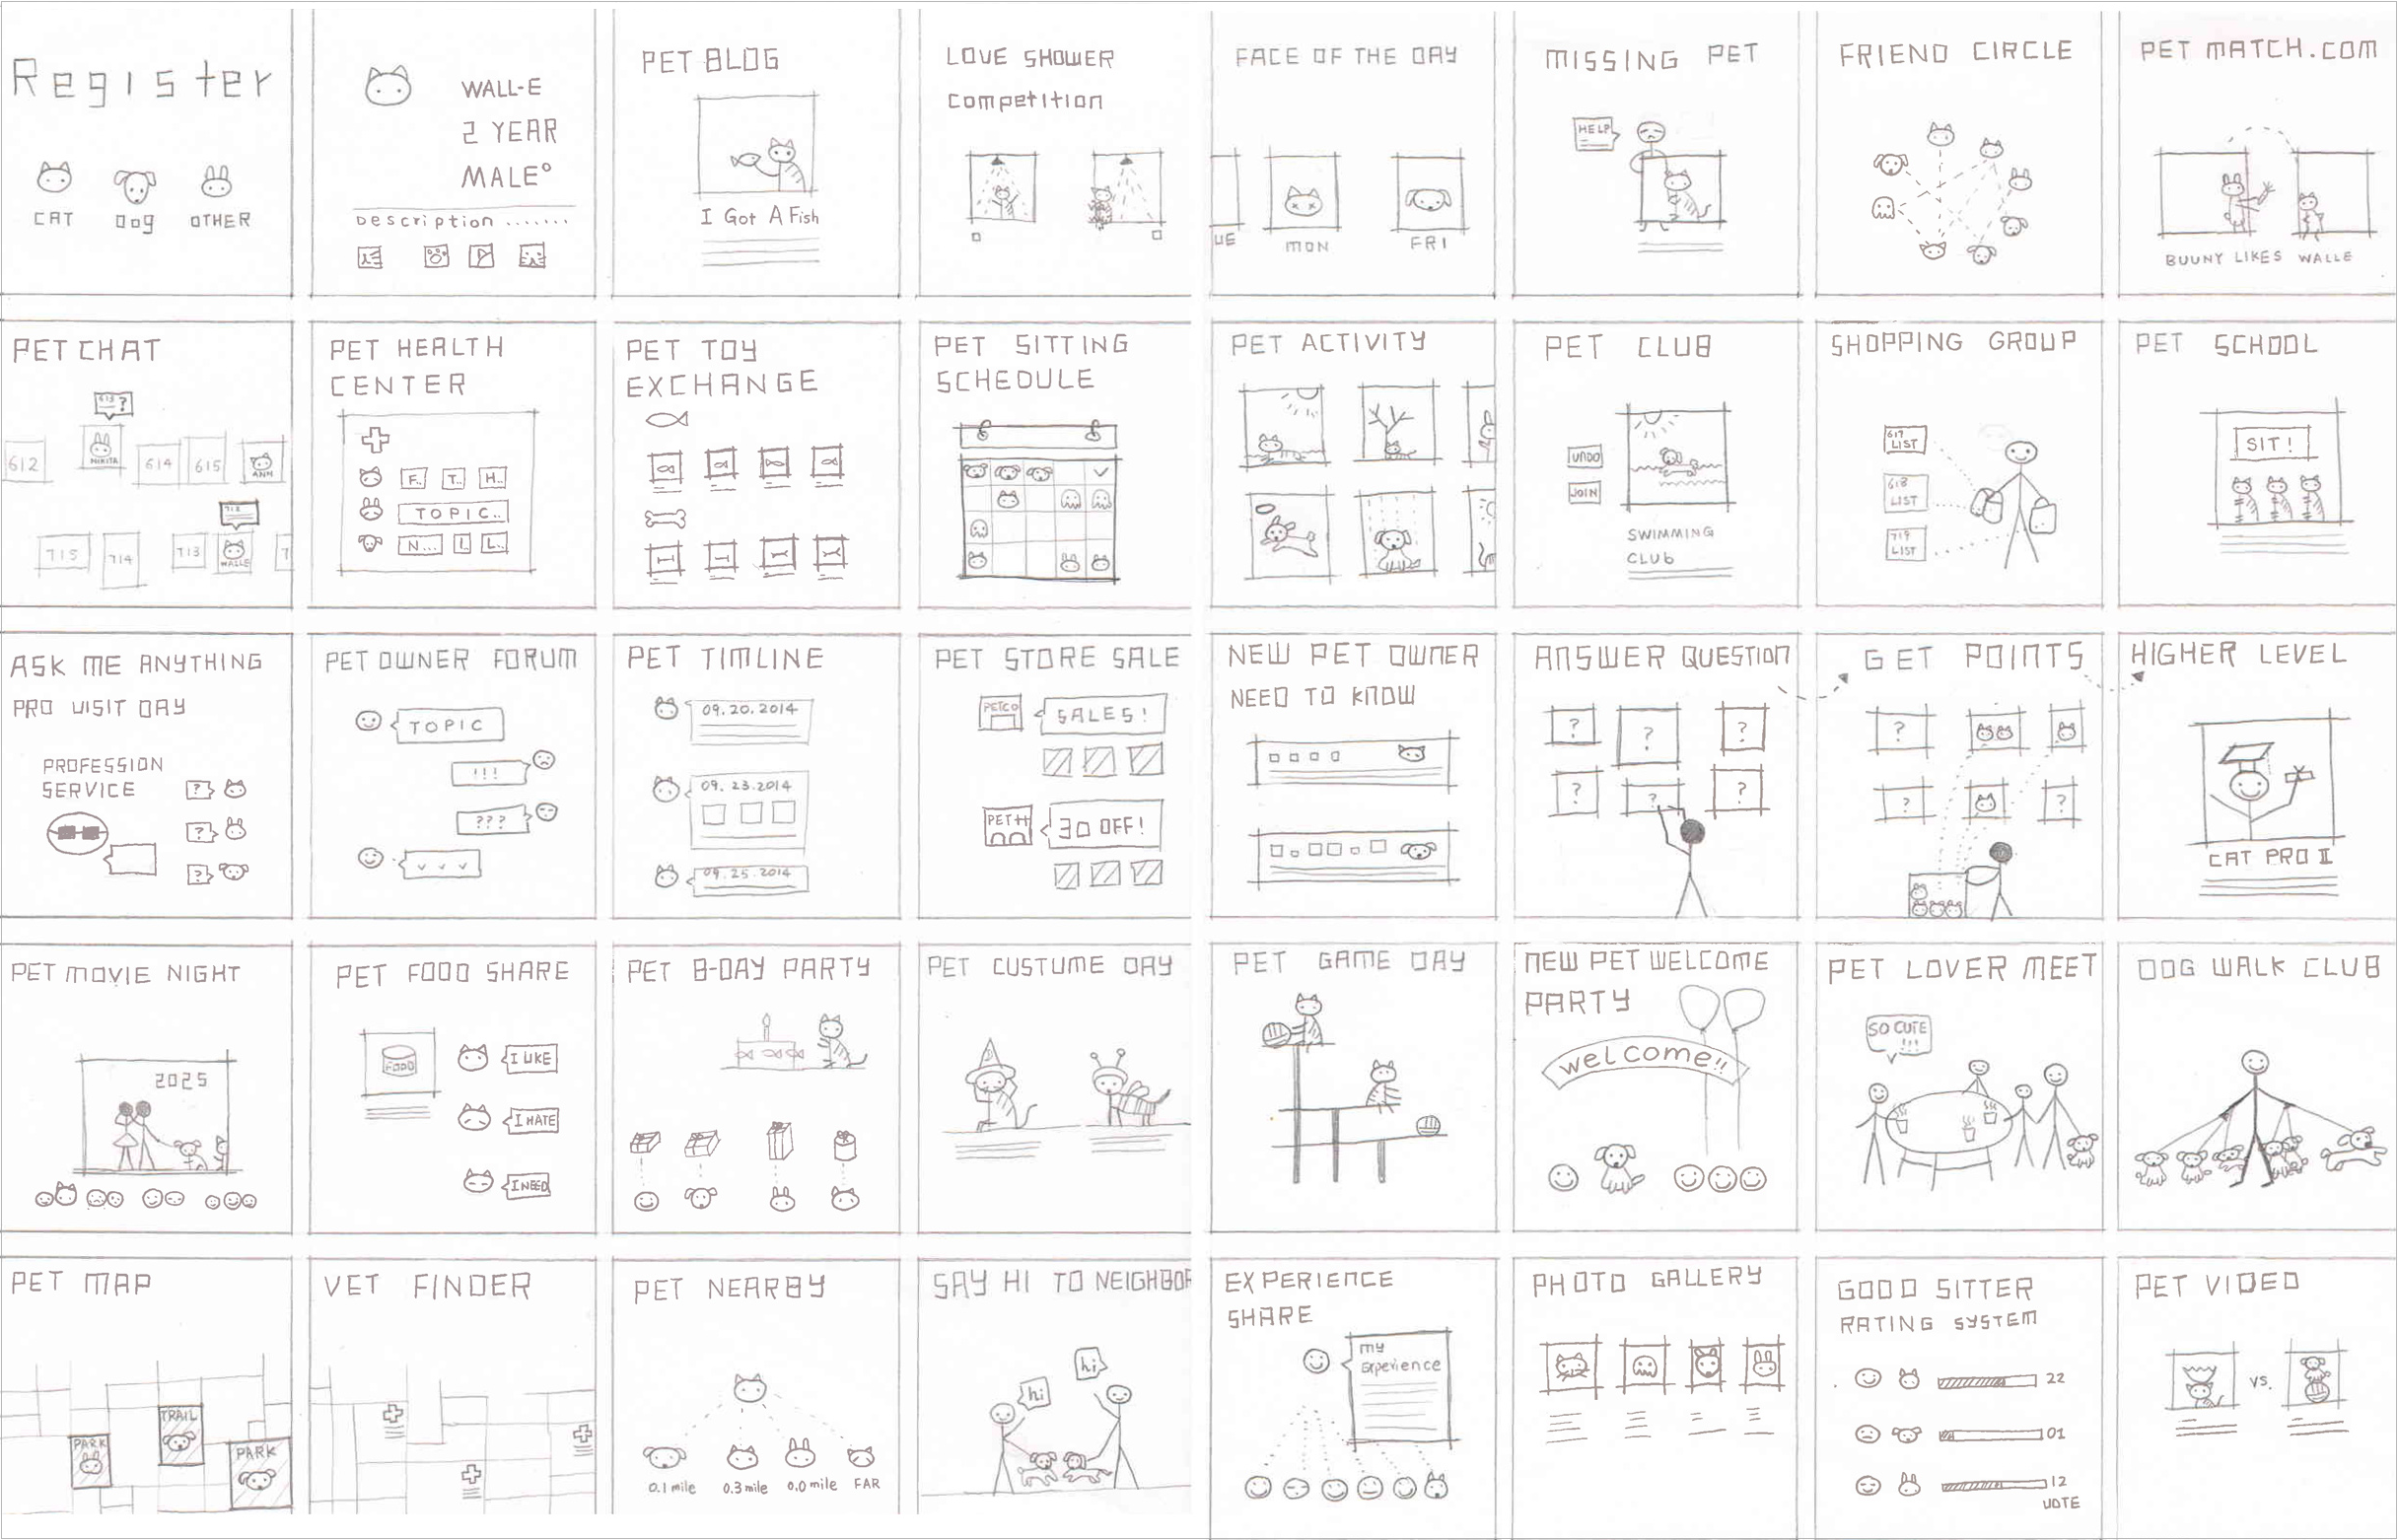 Register
CAT
Dog
OTHER
WALL-E
2 YEAR
MALE°
Description .......
PET BLOG
I Got A Fish
LOVE SHOWER
Competition
FACE OF THE DAY
UE
MON
FRI
MISSING PET
HELP
FRIEND CIRCLE
PET MATCH.COM
BUUNY LIKES WALLE
PET CHAT
613
?
612
NIKITA
614
615
ANN
713
715
714
713
WALLE
7
PET HEALTH
CENTER
F..
T..
H..
TOPIC..
N...
I.
L..
PET TOY
EXCHANGE
PET SITTING
SCHEDULE
PET ACTIVITY
PET CLUB
UNDO
JOIN
SWIMMING
CLUb
SHOPPING GROUP
617
LIST
618
LIST
719
LIST
PET SCHOOL
SIT!
ASK ME ANYTHING
PRO VISIT DAY
PROFESSION
SERVICE
?
?
?
PET OWNER FORUM
TOPIC
!!!
???
PET TIMLINE
09.20.2014
09.23.2014
09.25.2014
PET STORE SALE
PETCO
SALES!
PET
30 OFF!
NEW PET OWNER
NEED TO KNOW
ANSWER QUESTION
?
?
?
?
?
?
GET POINTS
?
?
?
HIGHER LEVEL
CAT PRO II
PET MOVIE NIGHT
2025
PET FOOD SHARE
FOOD
I LIKE
I HATE
I NEED
PET B-DAY PARTY
PET CUSTUME DAY
PET GAME DAY
NEW PET WELCOME
PARTY
welcome!!
PET LOVER MEET
SO CUTE
!!!
DOG WALK CLUB
PET MAP
TRAIL
PARK
PARK
VET FINDER
PET NEARBY
0.1 mile
0.3 mile
0.0 mile
FAR
SAY HI TO NEIGHBOR
hi
hi
EXPERIENCE
SHARE
my
experience
PHOTO GALLERY
GOOD SITTER
RATING SYSTEM
22
01
12
VOTE
PET VIDEO
VS.